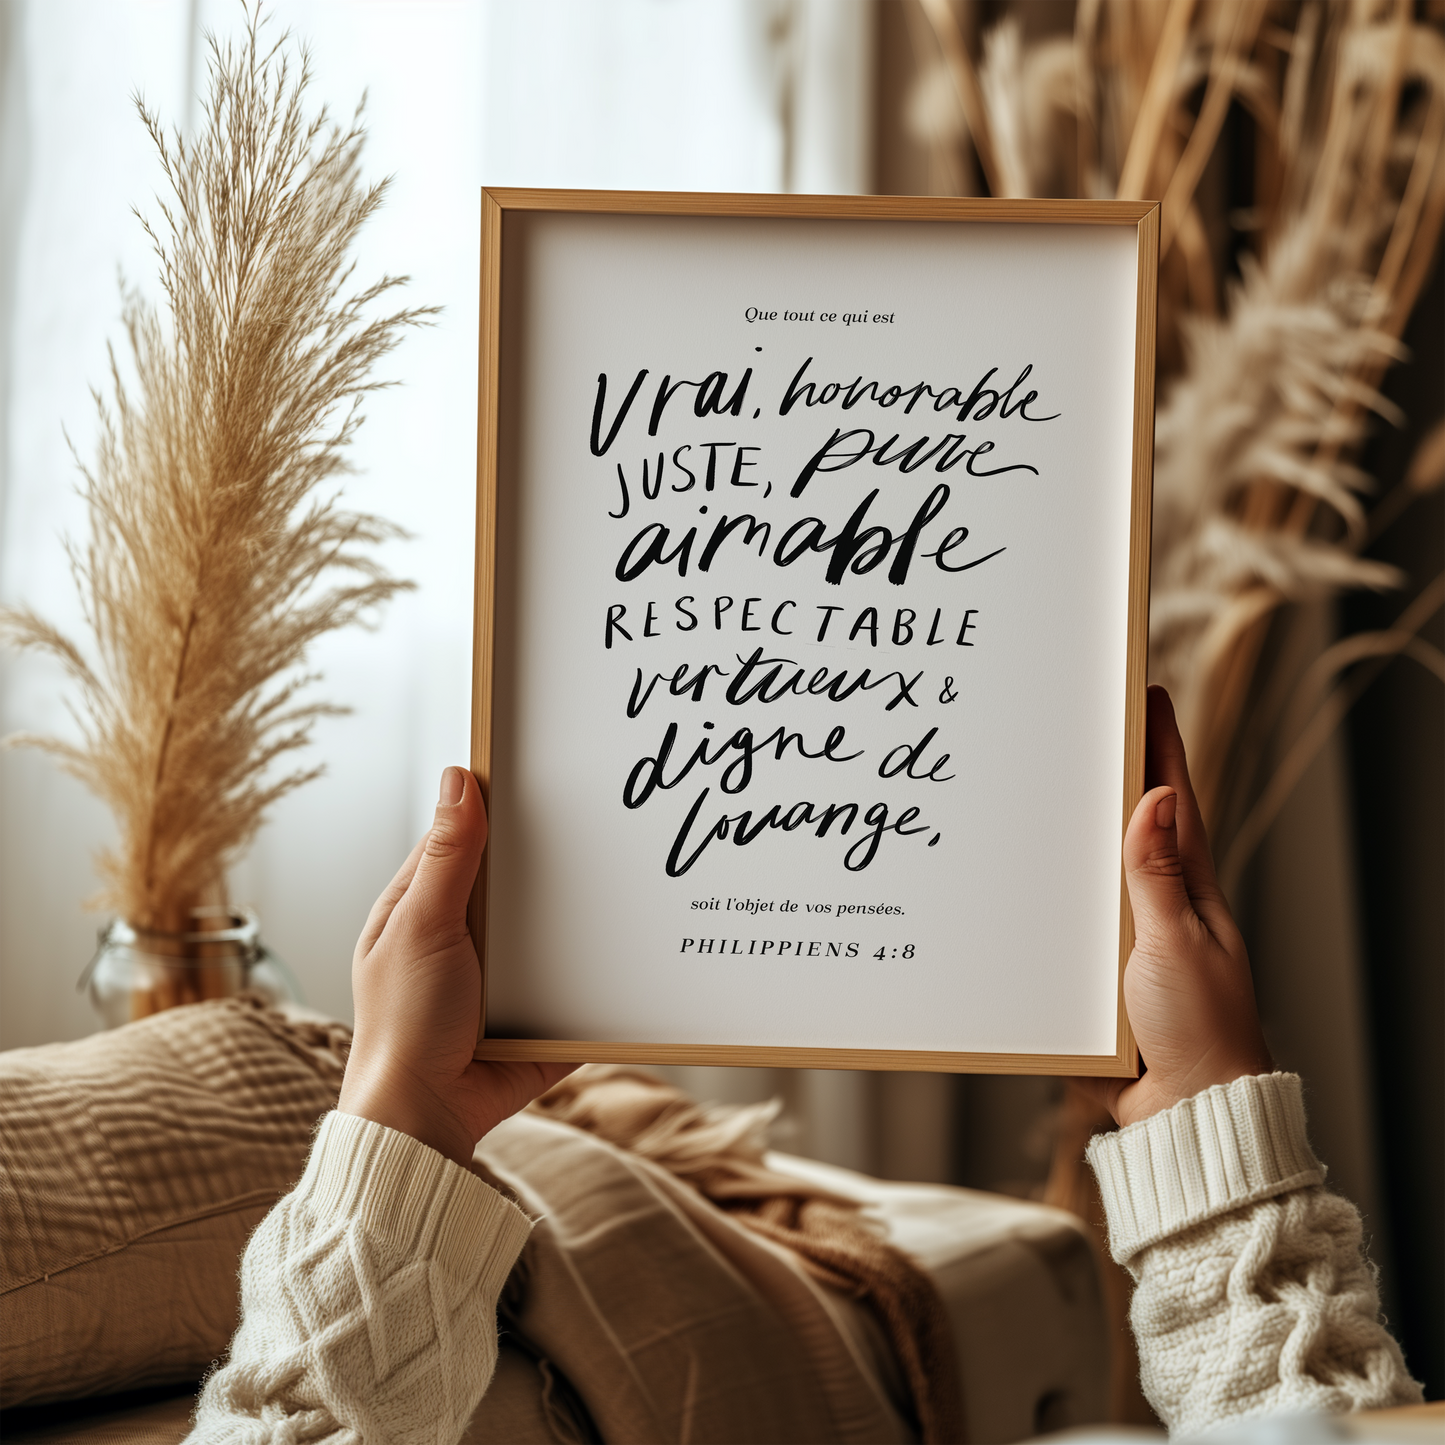 Que tout ce qui est
vrai, honorable
JUSTE, pure
aimable
RESPECTABLE
vertueux &
digne de
louange,
soit l'objet de vos pensées.
PHILIPPIENS 4:8